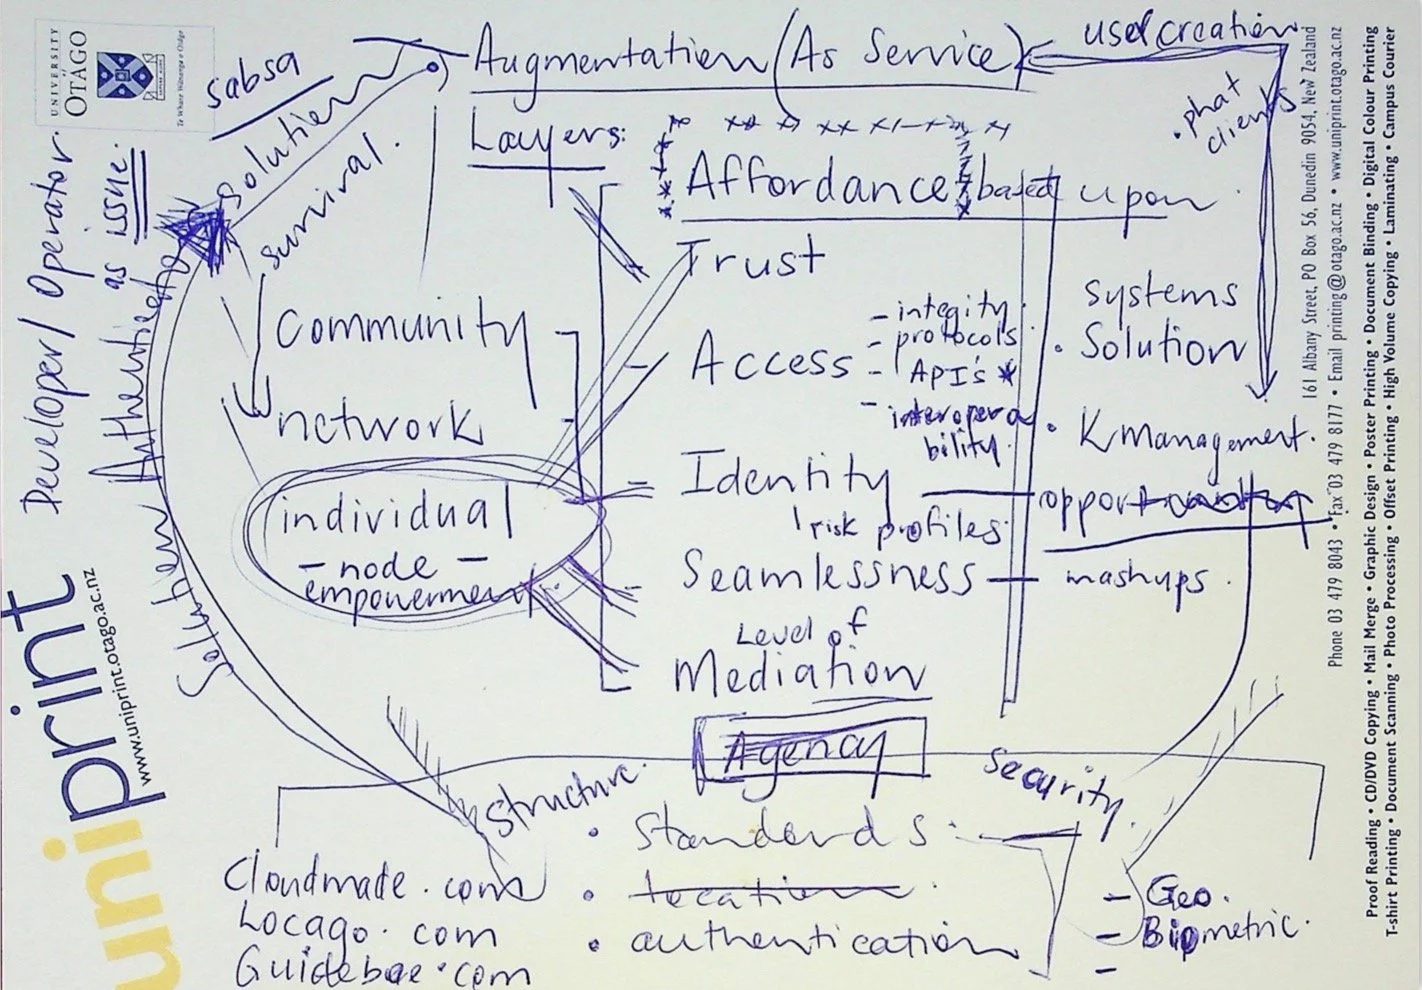 UNIVERSITY
of
OTAGO
Te Whare Wānanga o Otāgo
sabsa
Augmentation (As Service)
user creation
• phat
clients
solution
survival.
Layers:
Affordance based upon
Developer / Operator.
as issue.
Trust
systems
• Solution
Community
Access
- integity
- protocols
- API's *
- interopera
bility.
network
• K Management.
Identity
risk profiles
individual
- node -
empowerment
Seamlessness
mashups.
Level of
Mediation
Agency
structure.
Security.
• Standards
• location
• authentication
Cloudmade.com
Locago.com
- Geo.
- Biometric.
-
uniprint
www.uniprint.otago.ac.nz
161 Albany Street, PO Box 56, Dunedin 9054, New Zealand
Phone 03 479 8043 • Fax 03 479 8177 • Email printing@otago.ac.nz • www.uniprint.otago.ac.nz
Proof Reading • CD/DVD Copying • Mail Merge • Graphic Design • Poster Printing • Document Binding • Digital Colour Printing
T-shirt Printing • Document Scanning • Photo Processing • Offset Printing • High Volume Copying • Laminating • Campus Courier